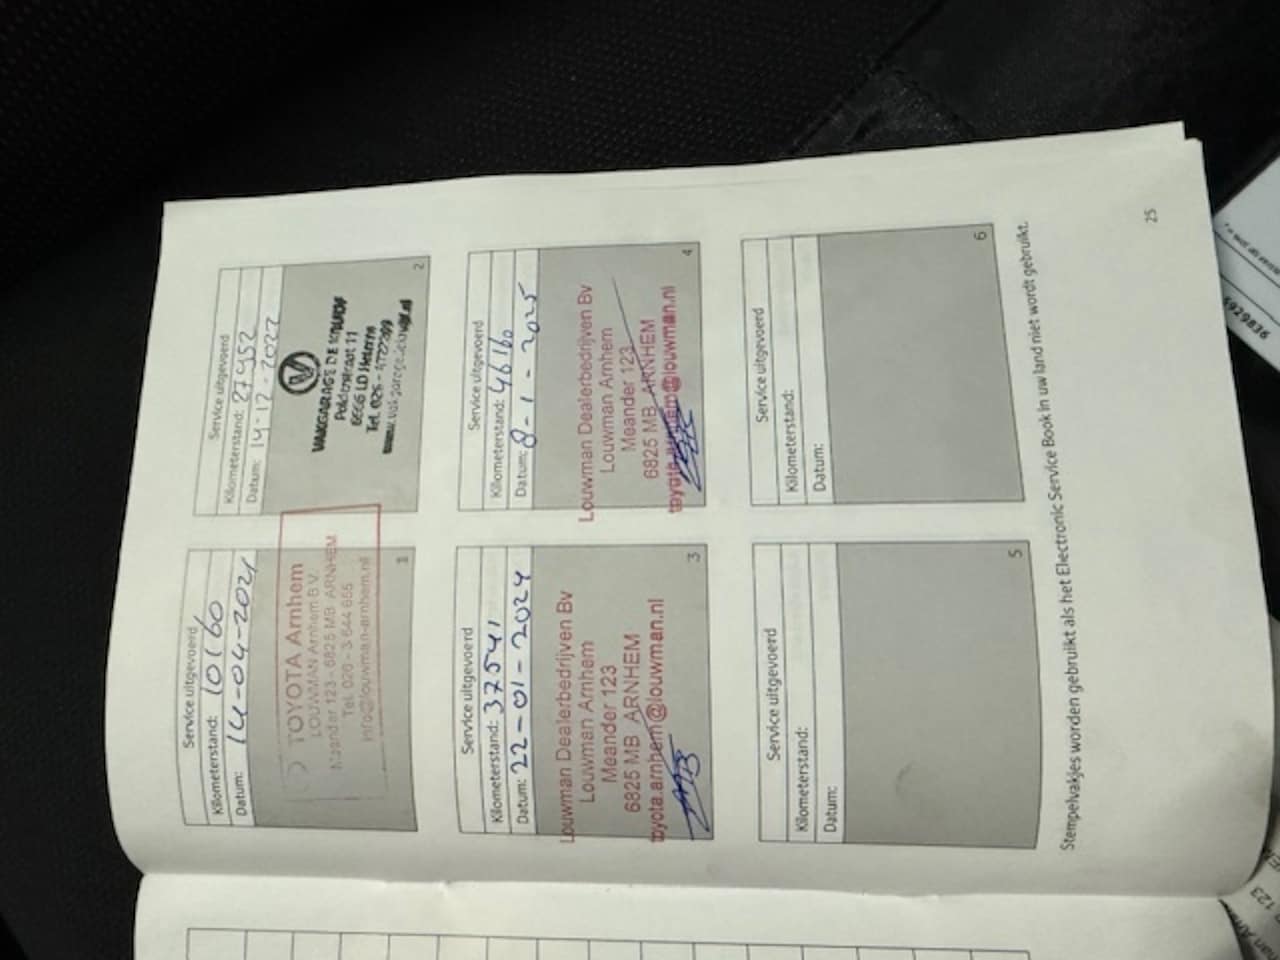 Service uitgevoerd
Kilometerstand: 10160
Datum: 14-04-2021
TOYOTA Arnhem
LOUWMAN Arnhem B.V.
Meander 123 - 6825 MB ARNHEM
Tel. 026 - 3 644 655
info@louwman-arnhem.nl
1
Service uitgevoerd
Kilometerstand: 27952
Datum: 14-12-2022
VAKGARAGE DE
Polderstraat 11
6666 LD Heteren
Tel. 026 -
2
Service uitgevoerd
Kilometerstand: 37541
Datum: 22-01-2024
Louwman Dealerbedrijven Bv
Louwman Arnhem
Meander 123
6825 MB ARNHEM
toyota.arnhem@louwman.nl
3
Service uitgevoerd
Kilometerstand: 46160
Datum: 8-1-2025
Louwman Dealerbedrijven Bv
Louwman Arnhem
Meander 123
6825 MB ARNHEM
toyota.arnhem@louwman.nl
4
Service uitgevoerd
Kilometerstand:
Datum:
5
Service uitgevoerd
Kilometerstand:
Datum:
6
Stempelvakjes worden gebruikt als het Electronic Service Book in uw land niet wordt gebruikt.
25
6929836
123